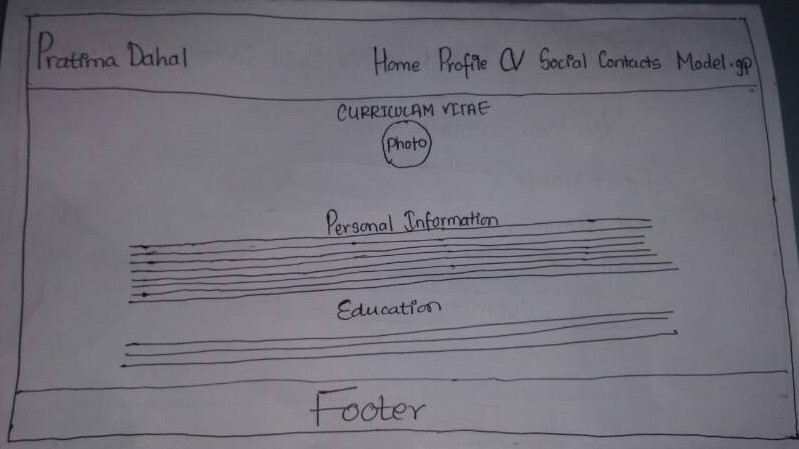 Pratima Dahal Home Profile CV Social Contacts Model.gp
CURRICULAM VITAE
Photo
Personal Information
Education
Footer